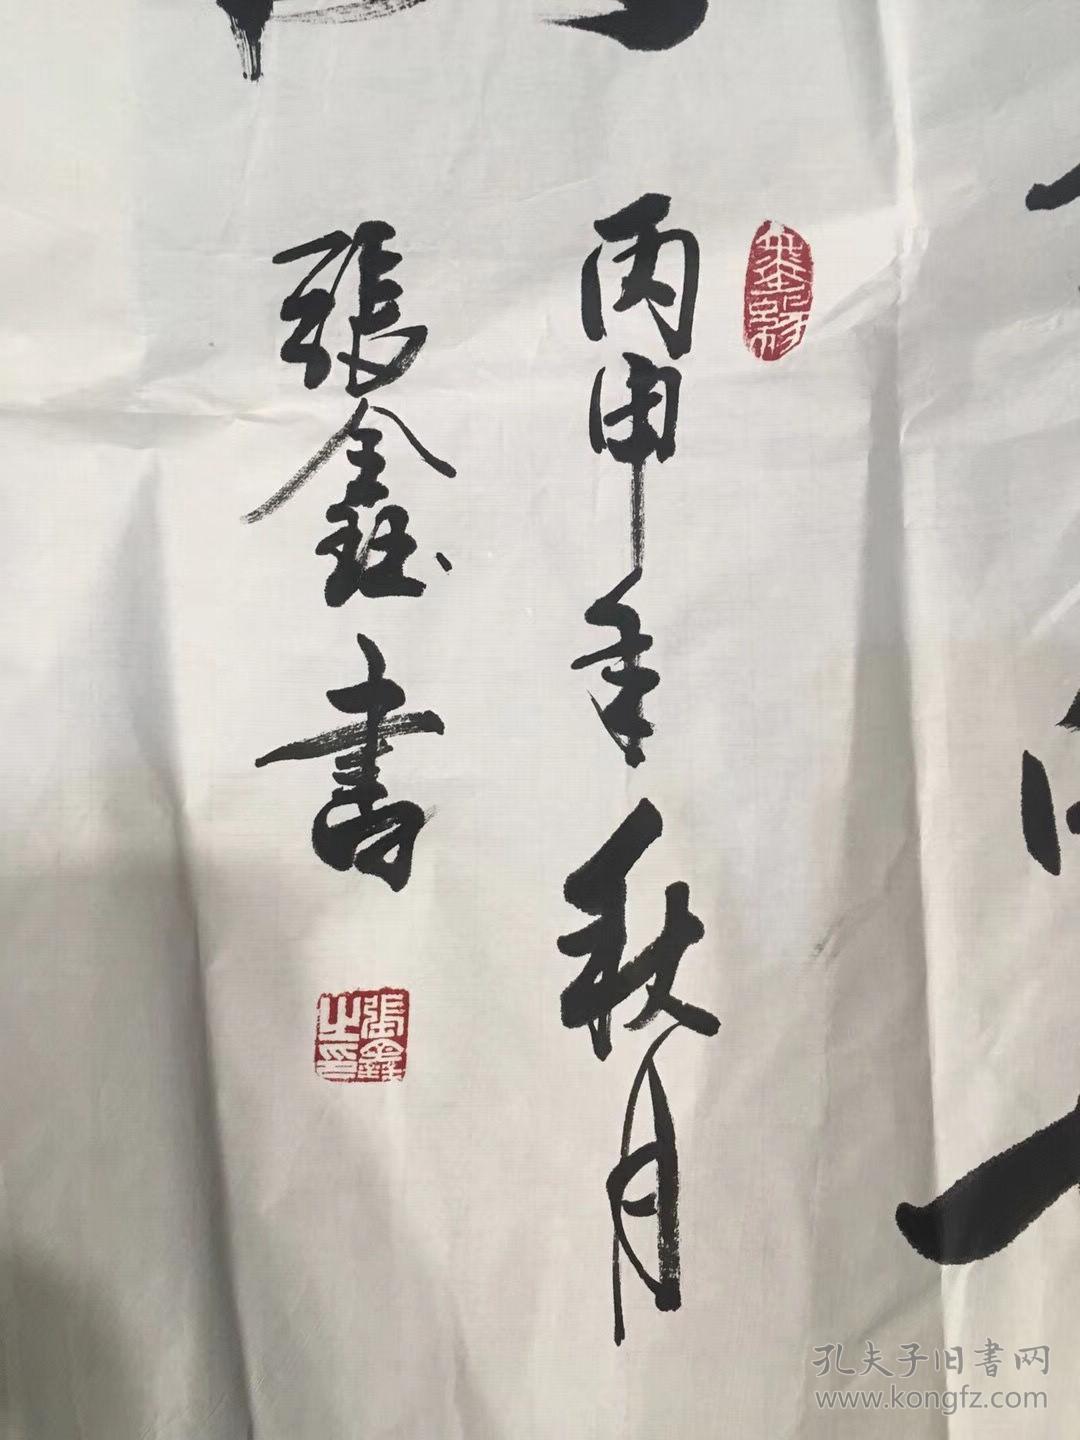 丙申年秋月
張鑫書
張鑫之印
孔夫子旧书网
www.kongfz.com